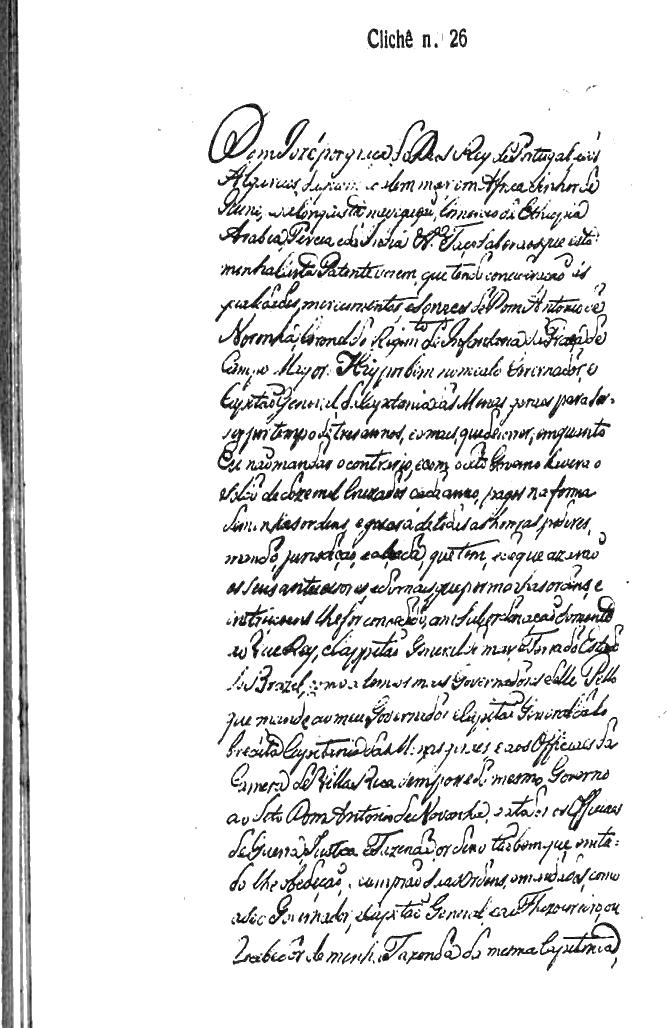 Clichê n. 26
Dom José por graça de Deos Rey de Portugal, e dos
Algarves, daquem, e dalem mar, em Africa Senhor de
Guiné, e da Conquista, navegação, Comercio da Ethiopia
Arabia, Percia e da India &ª Faço saber aos que esta
minha Carta Patente virem, que tendo concideração ás
qualidades, merecimentos e serviços de Dom Antonio de
Noronha, Coronel do Regimto de Infantaria da Praça de
Campo Mayor. Hey por bem nomealo Governador, e
Capitão General da Capitania das Minas geraes para ser-
vir por tempo de tres annos, e o mais, que decorrer, emquanto
Eu não mandar o contrario, e com o dito Governo havera o
soldo de doze mil Cruzados cada anno, pagos na forma
de minhas ordens, e gosará de todas as honras, poderes,
mando, jurisdição, e alçada, que tem, e de que uzarão
os seus antecessores e do mais, que por minhas ordens, e
instrucçoens lhe for concedido, com subordinação somente
ao Vice Rey, e Cappitão General de mar e Terra do Estado
do Brazil, como a tem os mais Governadores delle Pello
que mando ao meu Governador e Capitão General da so-
bredita Capitania das Minas geraes e aos Officiaes da
Camera de Villa Rica dem posse do mesmo Governo
ao dito Dom Antonio de Noronha, e a todos os Officiaes
de Guerra, Justiça e Fazenda ordeno tambem que em tu-
do lhe obedeção, e cumprão suas Ordens, e mandados, como
a seo Governador, e Capitão General, e ao Thezoureiro, ou
Recebedor de minha Fazenda da mesma Capitania,